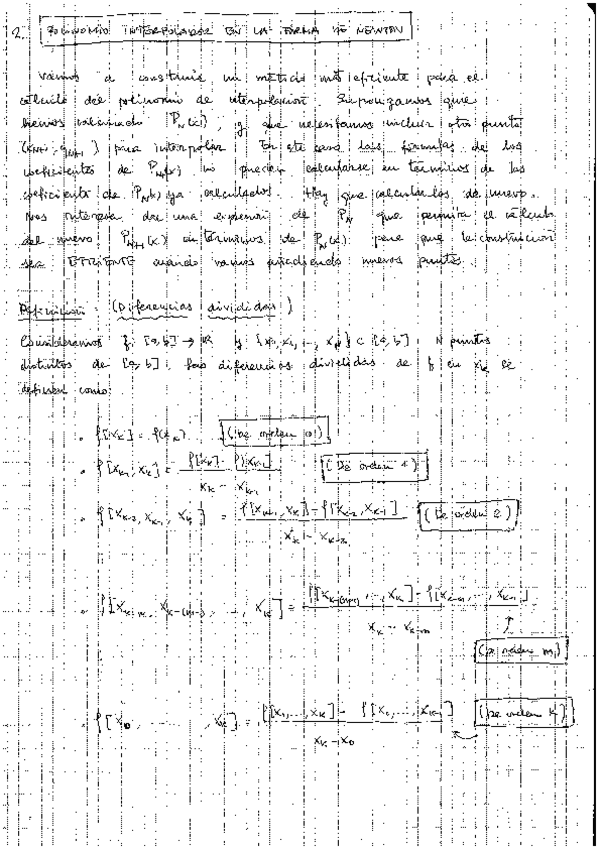 2. POLINOMIO INTERPOLADOR EN LA FORMA DE NEWTON
Vamos a construir un método más eficiente para el
cálculo del polinomio de interpolación. Supongamos que
hemos calculado P_N(x), y que necesitamos incluir otro punto
(x_{N+1}, y_{N+1}) para interpolar. En este caso las fórmulas de los
coeficientes de P_{N+1}(x) no pueden calcularse en términos de los
coeficientes de P_N(x) ya calculados. Hay que calcularlos de nuevo.
Nos interesa dar una expresión de P_N que permita el cálculo
del nuevo P_{N+1}(x) en términos de P_N(x) para que la construcción
sea EFICIENTE cuando vamos añadiendo nuevos puntos.
Definición: (Diferencias divididas)
Consideramos f: [a,b] → ℝ y {x_0, x_1, ..., x_N} ⊂ [a,b], N puntos
distintos de [a,b]. Las diferencias divididas de f en x_k se
definen como:
· f[x_k] = f(x_k) (De orden 0)
· f[x_{k-1}, x_k] = (f[x_k] - f[x_{k-1}]) / (x_k - x_{k-1}) (De orden 1)
· f[x_{k-2}, x_{k-1}, x_k] = (f[x_{k-1}, x_k] - f[x_{k-2}, x_{k-1}]) / (x_k - x_{k-2}) (De orden 2)
· f[x_{k-m}, x_{k-(m-1)}, ..., x_k] = (f[x_{k-(m-1)}, ..., x_k] - f[x_{k-m}, ..., x_{k-1}]) / (x_k - x_{k-m})
(De orden m)
· f[x_0, ..., x_k] = (f[x_1, ..., x_k] - f[x_0, ..., x_{k-1}]) / (x_k - x_0) (De orden k)